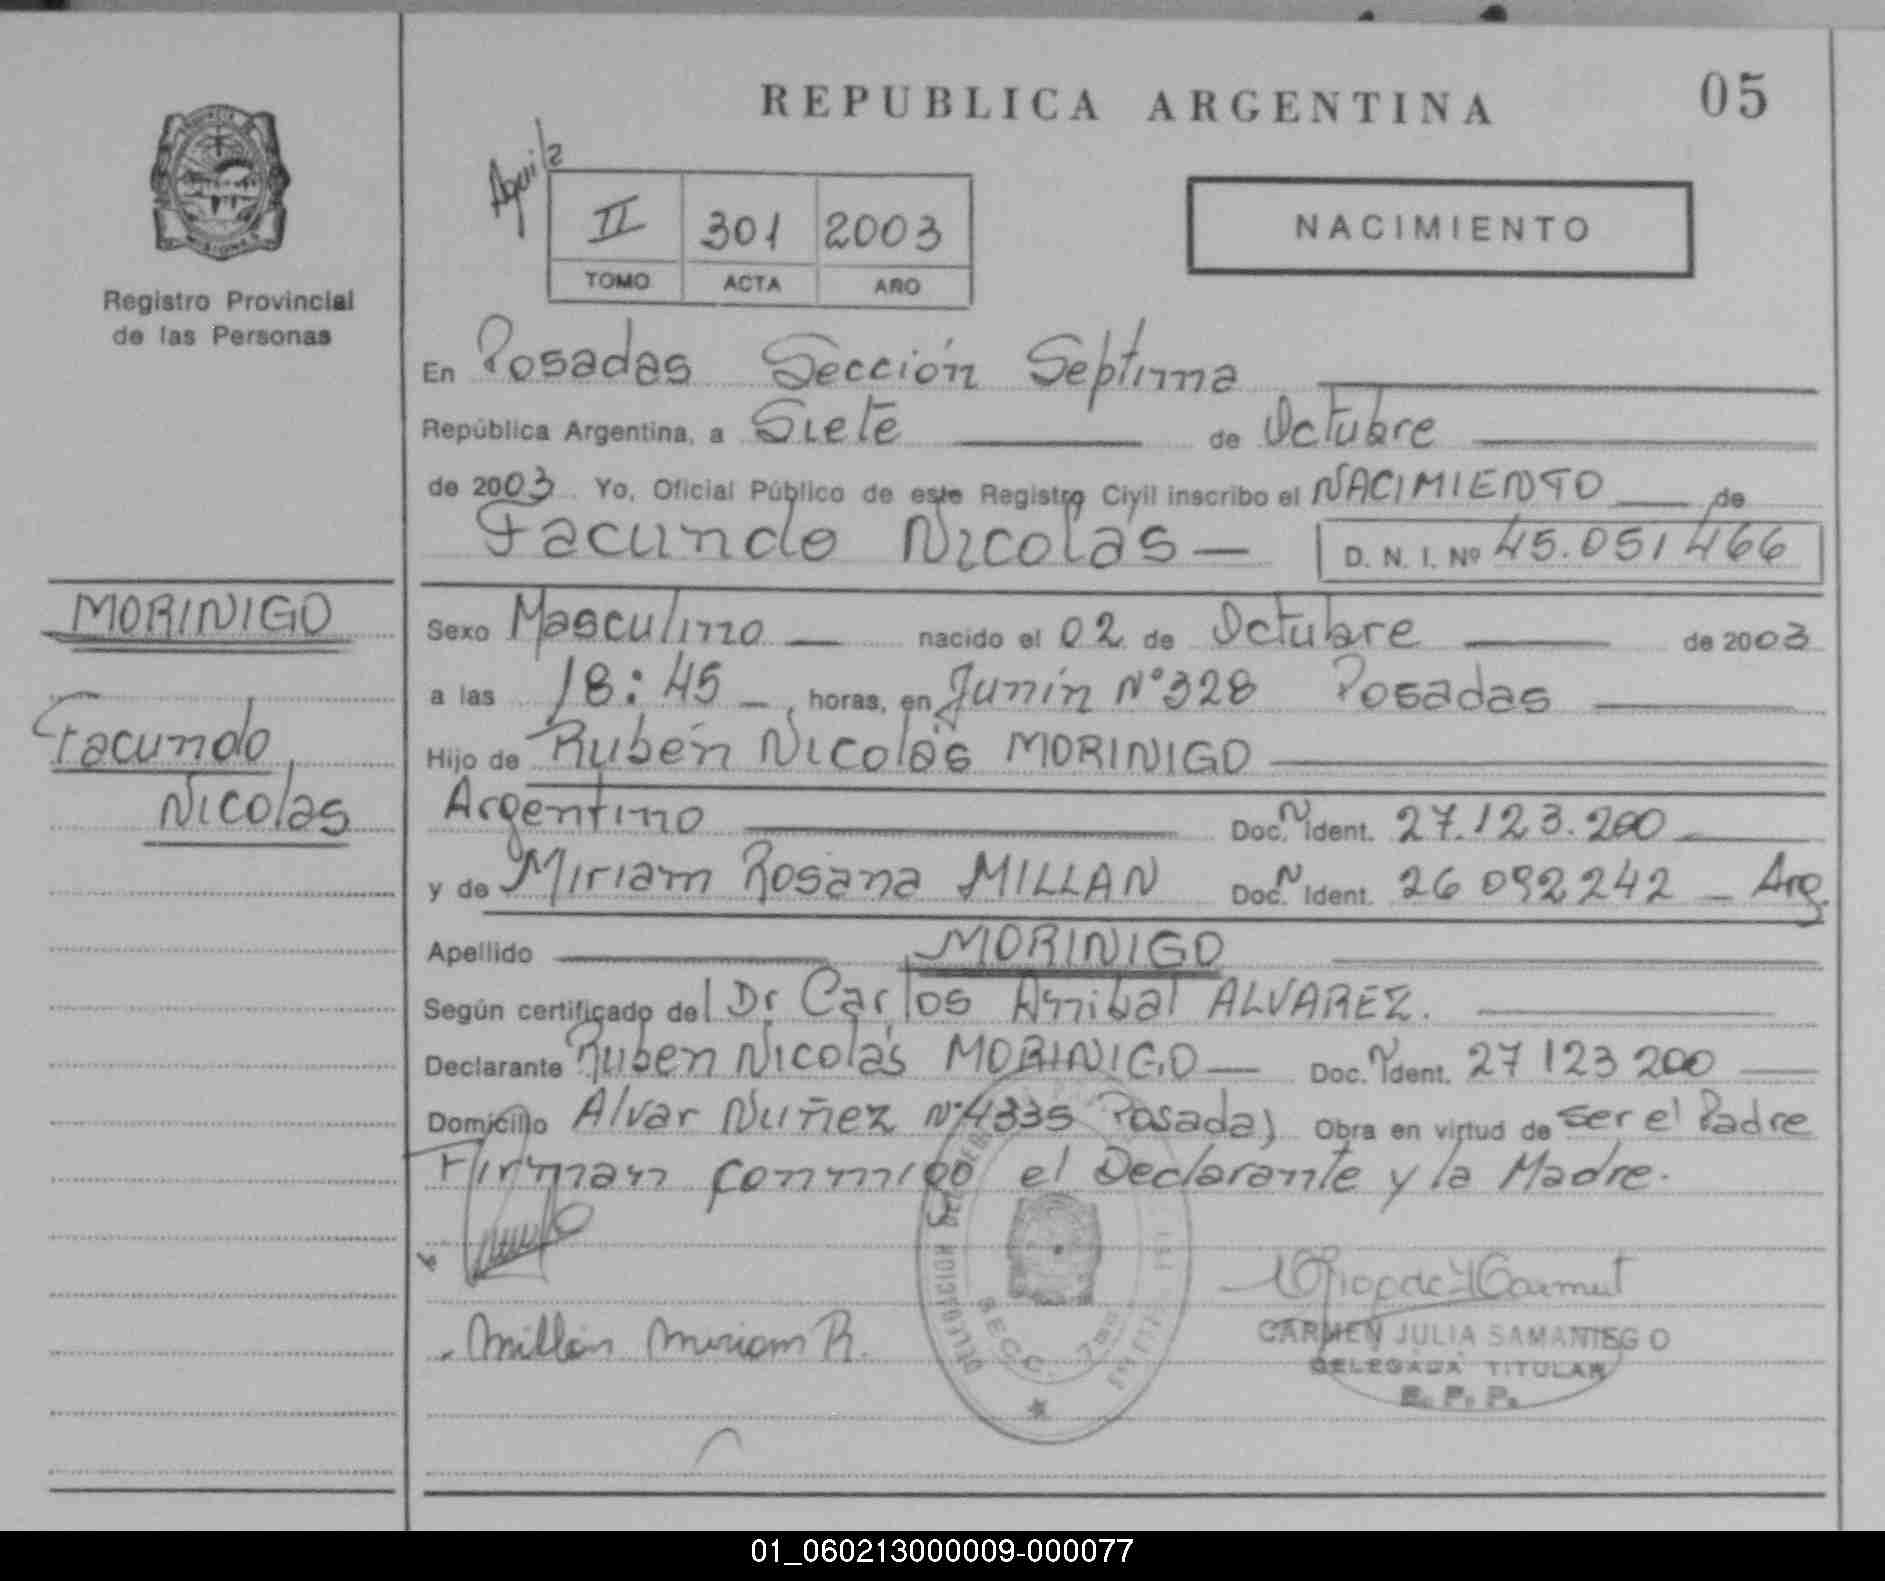 REPUBLICA ARGENTINA
05
Registro Provincial
de las Personas
II 301 2003
TOMO ACTA AÑO
NACIMIENTO
En Posadas Sección Septima
República Argentina, a Siete de Octubre
de 2003. Yo, Oficial Público de este Registro Civil inscribo el NACIMIENTO de
Facundo Nicolás D. N. I. Nº 45.051466
MORINIGO
Facundo
Nicolas
Sexo Masculino nacido el 02 de Octubre de 2003
a las 18:45 horas, en Junín Nº 328 Posadas
Hijo de Rubén Nicolás MORINIGO
Argentino Doc. N Ident. 27.123.200
y de Miriam Rosana MILLAN Doc. N Ident. 26 092242 Arg.
Apellido MORINIGO
Según certificado del Dr Carlos Annibal ALVAREZ.
Declarante Ruben Nicolás MORINIGO Doc. N Ident. 27 123 200
Domicilio Alvar Nuñez Nº 4335 Posadas Obra en virtud de ser el Padre
Firman conmigo el Declarante y la Madre.
Millán Miriam R.
DELEGACION
SECC. 7ma
CARMEN JULIA SAMANIEGO
DELEGADA TITULAR
R. P. P.
01_060213000009-000077